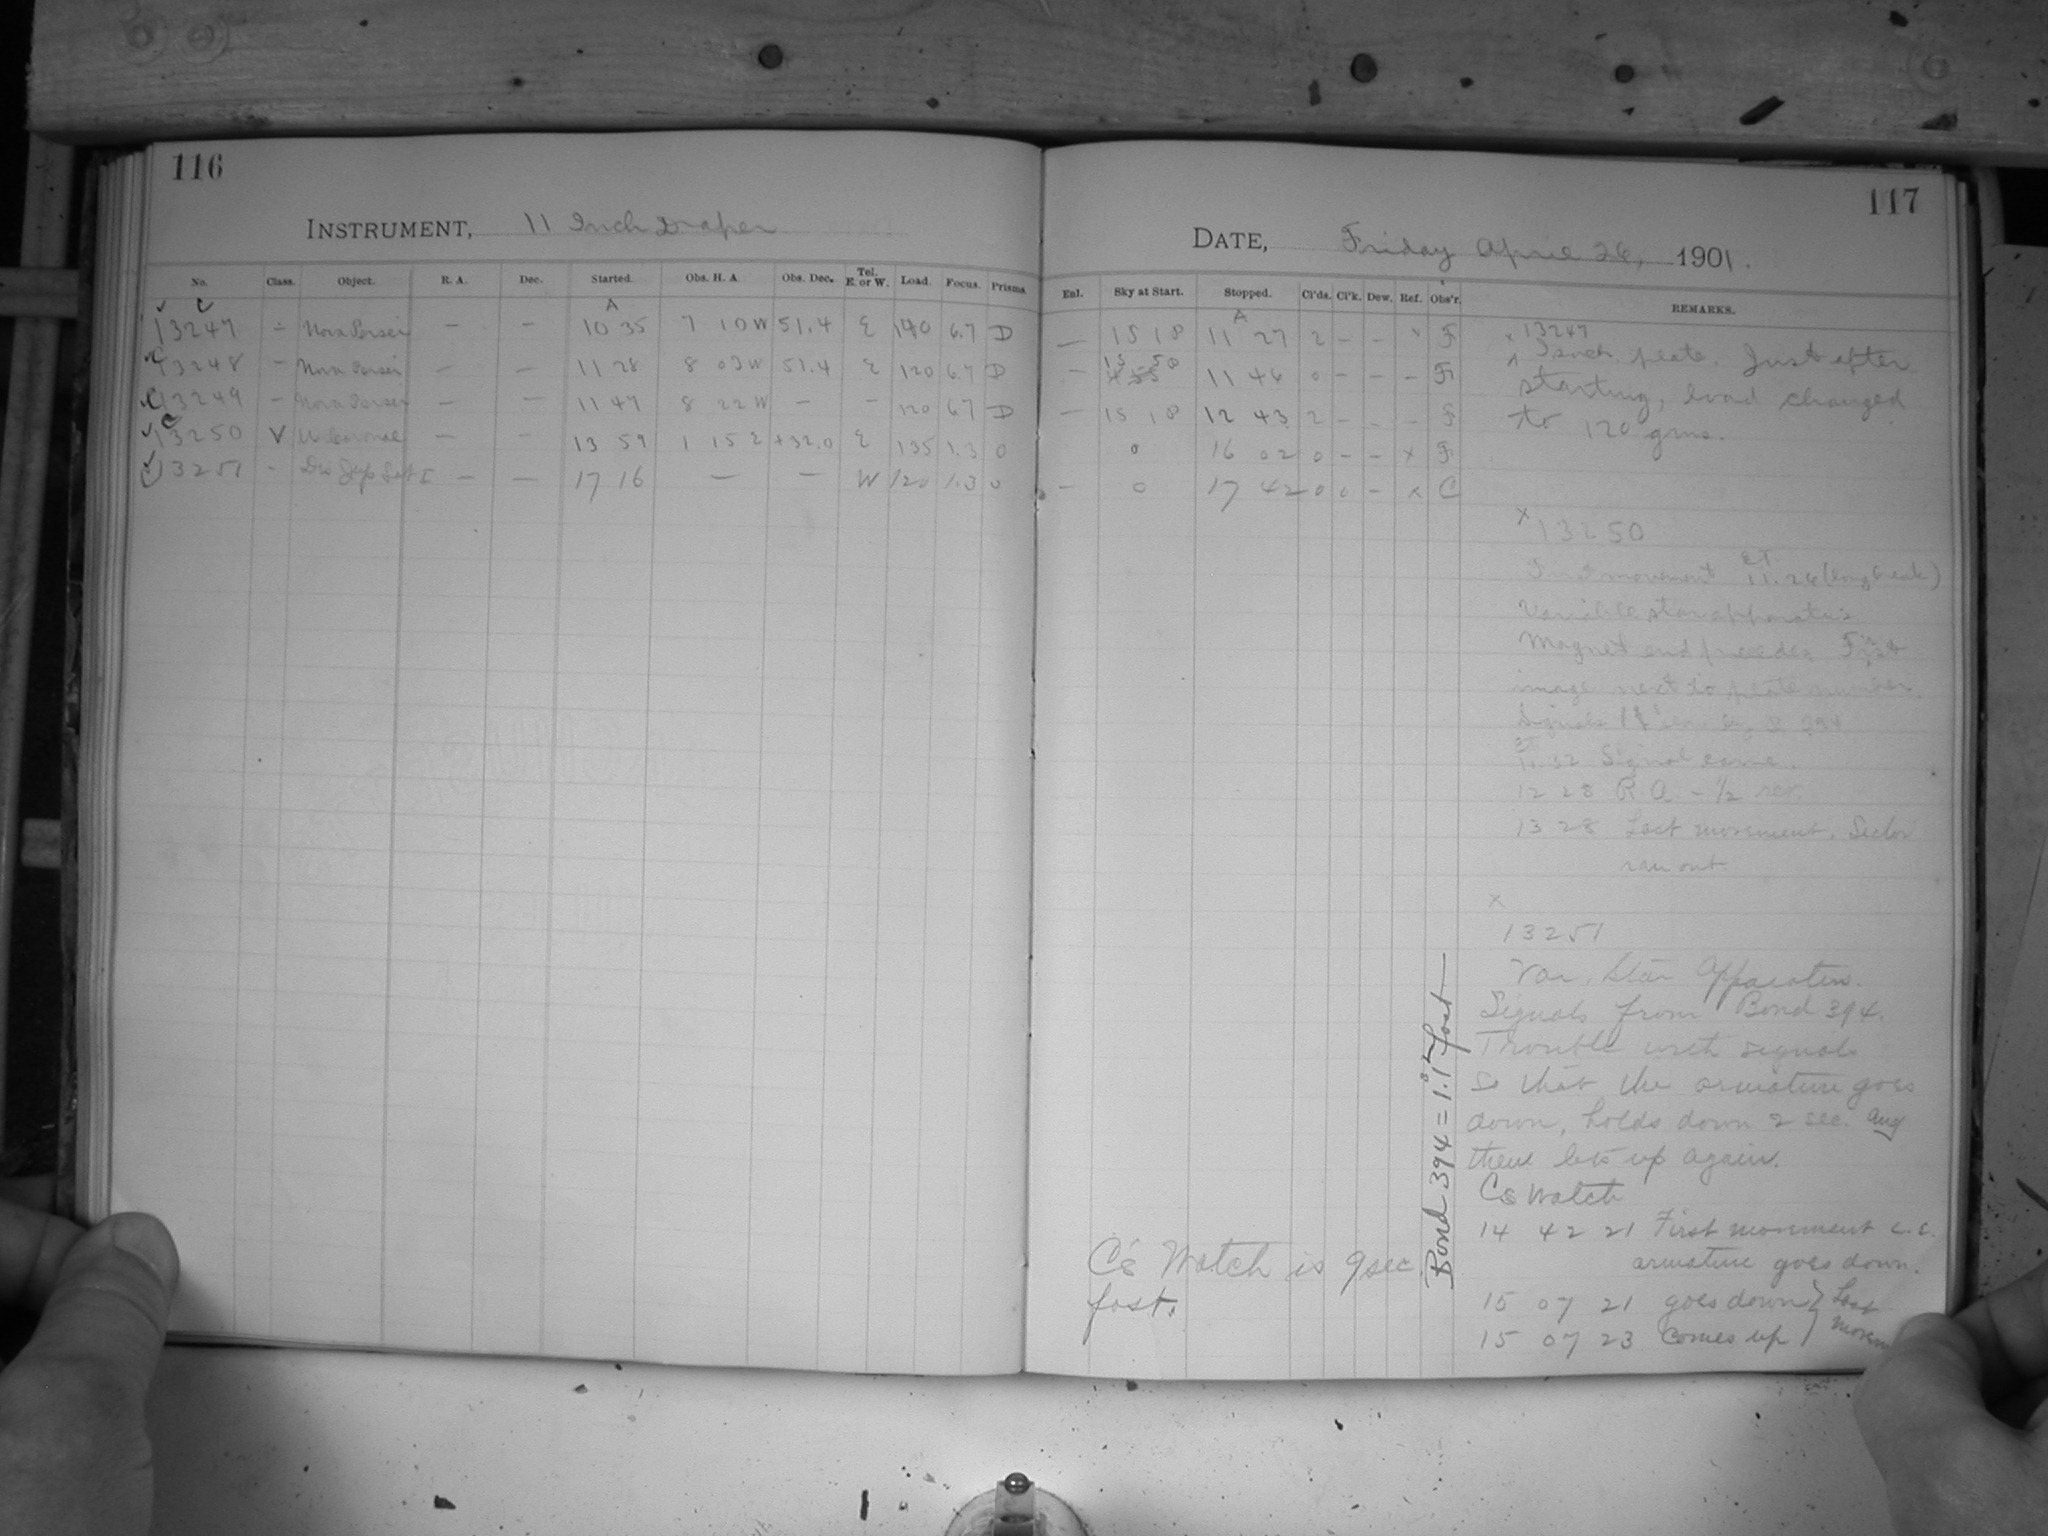 116
INSTRUMENT, 11 Inch Draper
No. Class. Object. R. A. Dec. Started. Obs. H. A. Obs. Dec. Tel. E. or W. Load. Focus. Prisms.
A
13247 - Nova Persei - - 10 35 7 10 W 51.4 E 140 6.7 D
13248 - Nova Persei - - 11 28 8 03 W 51.4 E 120 6.7 D
13249 - Nova Persei - - 11 47 8 22 W - - 120 6.7 D
13250 V U Coronae - - 13 59 1 15 E +32.0 E 135 1.3 0
13251 - Jup Sat I - - 17 16 - - W 120 1.3 0
117
DATE, Friday April 26, 1901.
Enl. Sky at Start. Stopped. Cl'ds. Cl'k. Dew. Ref. Obs'r. REMARKS.
A
- 15 18 11 27 2 - - x F
- 15 50 11 46 0 - - - F
- 15 18 12 43 2 - - - F
0 16 02 0 - - x F
- 0 17 42 0 0 - x C
x 13247
plate. Just after
starting, load changed
to 120 grms.
x 13250
First movement 11.26 (long break)
Variable star apparatus
Magnet end precedes First
image next to plate number.
Signals 394
11.32 Signal came.
12 28 R.A. - 1/2 rev.
13 28 Last movement. Sector
ran out.
x
13251
Var. Star Apparatus.
Signals from Bond 394.
Trouble with signals
so that the armature goes
down, holds down 2 sec. and
then lets up again.
C's Watch
14 42 21 First movement i.e.
armature goes down.
15 07 21 goes down } Last
15 07 23 comes up } movem
Bond 394 = fast
C's Watch is 9 sec
fast.